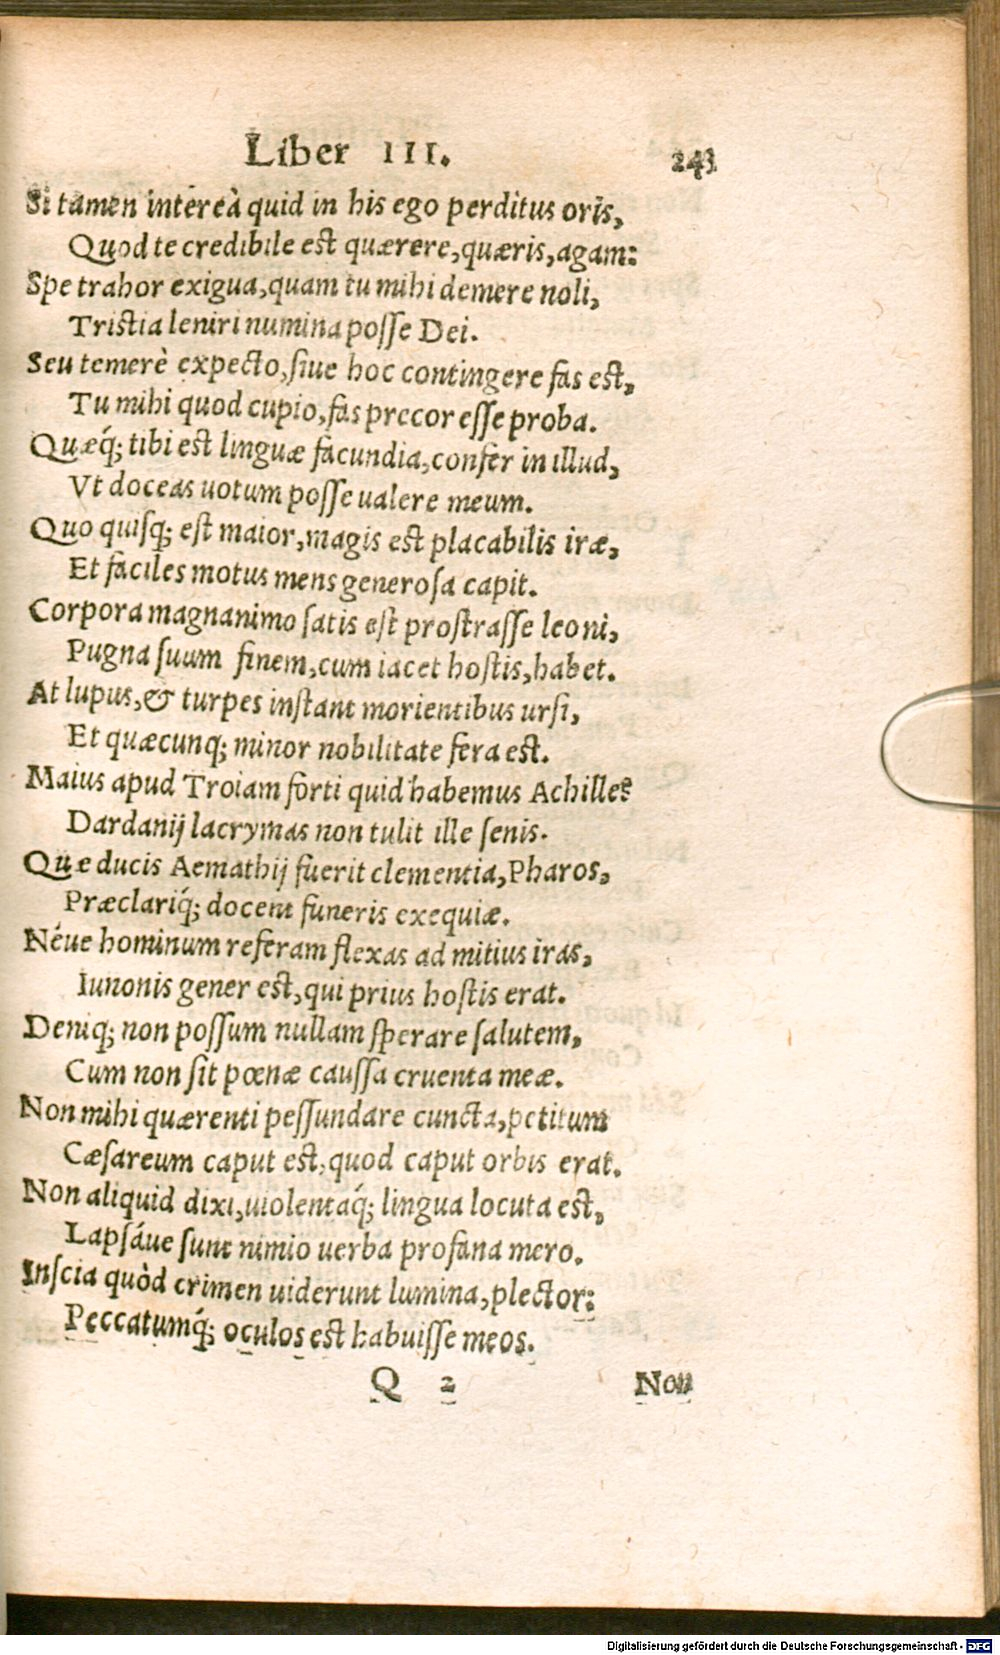 Liber III. 243
Si tamen intereà quid in his ego perditus oris,
Quod te credibile est quærere, quæris, agam:
Spe trahor exigua, quam tu mihi demere noli,
Tristia leniri numina posse Dei.
Seu temerè expecto, siue hoc contingere fas est,
Tu mihi quod cupio, fas precor esse proba.
Quæq́; tibi est linguæ facundia, confer in illud,
Vt doceas uotum posse ualere meum.
Quo quisq; est maior, magis est placabilis iræ,
Et faciles motus mens generosa capit.
Corpora magnanimo satis est prostrasse leoni,
Pugna suum finem, cum iacet hostis, habet.
At lupus, & turpes instant morientibus ursi,
Et quæcunq; minor nobilitate fera est.
Maius apud Troiam forti quid habemus Achille?
Dardanij lacrymas non tulit ille senis.
Quæ ducis Aemathij fuerit clementia, Pharos,
Præclariq́; docent funeris exequiæ.
Néue hominum referam flexas ad mitius iras,
Iunonis gener est, qui prius hostis erat.
Deniq; non possum nullam sperare salutem,
Cum non sit pœnæ caussa cruenta meæ.
Non mihi quærenti pessundare cuncta, petitum
Cæsareum caput est, quod caput orbis erat.
Non aliquid dixi, uiolentaq́; lingua locuta est,
Lapsáue sunt nimio uerba profana mero.
Inscia quòd crimen uiderunt lumina, plector:
Peccatumq́; oculos est habuisse meos.
Q 2 Non
Digitalisierung gefördert durch die Deutsche Forschungsgemeinschaft - DFG